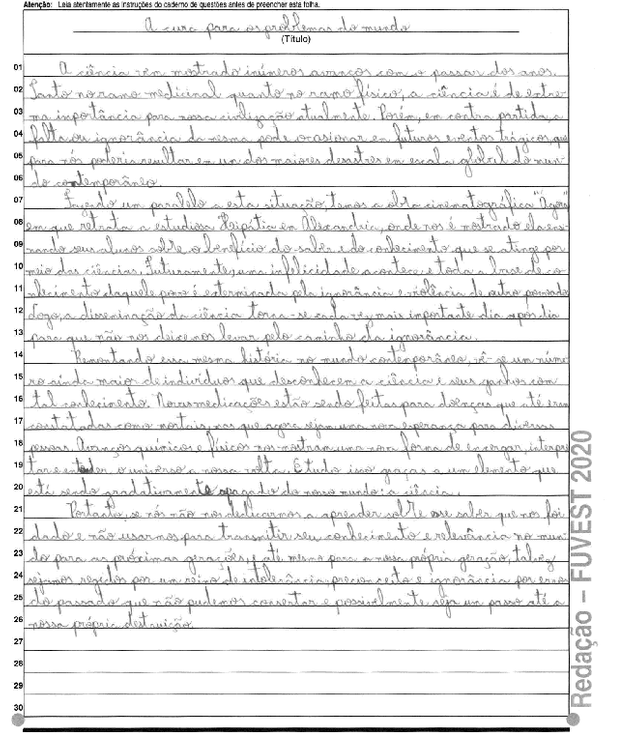 Atenção: Leia atentamente as instruções do caderno de questões antes de preencher esta folha.
A cura para os problemas do mundo
(Título)
01 A ciência vem mostrado inúmeros avanços com o passar dos anos.
02 Tanto no ramo medicinal quanto no ramo físico, a ciência é de extre-
03 ma importância para nossa civilização atualmente. Porém, em contra partida, a
04 falta ou ignorância da mesma pode ocasionar em futuros eventos trágicos que
05 para nós poderia resultar em um dos maiores desastres em escala global do mun-
06 do contemporâneo.
07 Fazendo um paralelo a esta situação, temos a obra cinematográfica "Ágora"
08 em que retrata a estudiosa Heipátia em Alexandria, onde nos é mostrado ela ensi-
09 nando seus alunos sobre o benefício do saber e do conhecimento que se atinge por
10 meio das ciências. Futuramente, uma infelicidade acontece e toda a base de co-
11 nhecimento daquele povo é exterminada pela ignorância e violência de outro povoado.
12 Logo, a disseminação da ciência torna-se cada vez mais importante dia após dia
13 para que não nos deixemos levar pelo caminho da ignorância.
14 Remontando essa mesma história no mundo contemporâneo, vê-se um núme-
15 ro ainda maior de indivíduos que desconhecem a ciência e seus ganhos com
16 tal conhecimento. Novas medicações estão sendo feitas para doenças que até eram
17 constatadas como mortais, mas que agora sejam uma nova esperança para diversas
18 pessoas. Avanços químicos e físicos nos mostram uma nova forma de enxergar, interpre
19 tar e entender o universo a nossa volta. E tudo isso graças a um elemento que
20 está sendo gradativamente apagado do nosso mundo: a ciência.
21 Portanto, se nós não nos dedicarmos a aprender sobre esse saber que nos foi
22 dado e não usarmos para transmitir seu conhecimento e relevância no mun-
23 do para as próximas gerações, e até mesmo para a nossa própria geração, talvez
24 sejamos regidos por um reino de intolerância, preconceito e ignorância por erros
25 do passado que não pudemos consertar e possivelmente seja um passo até a
26 nossa própria destruição.
27
28
29
30
Redação – FUVEST 2020